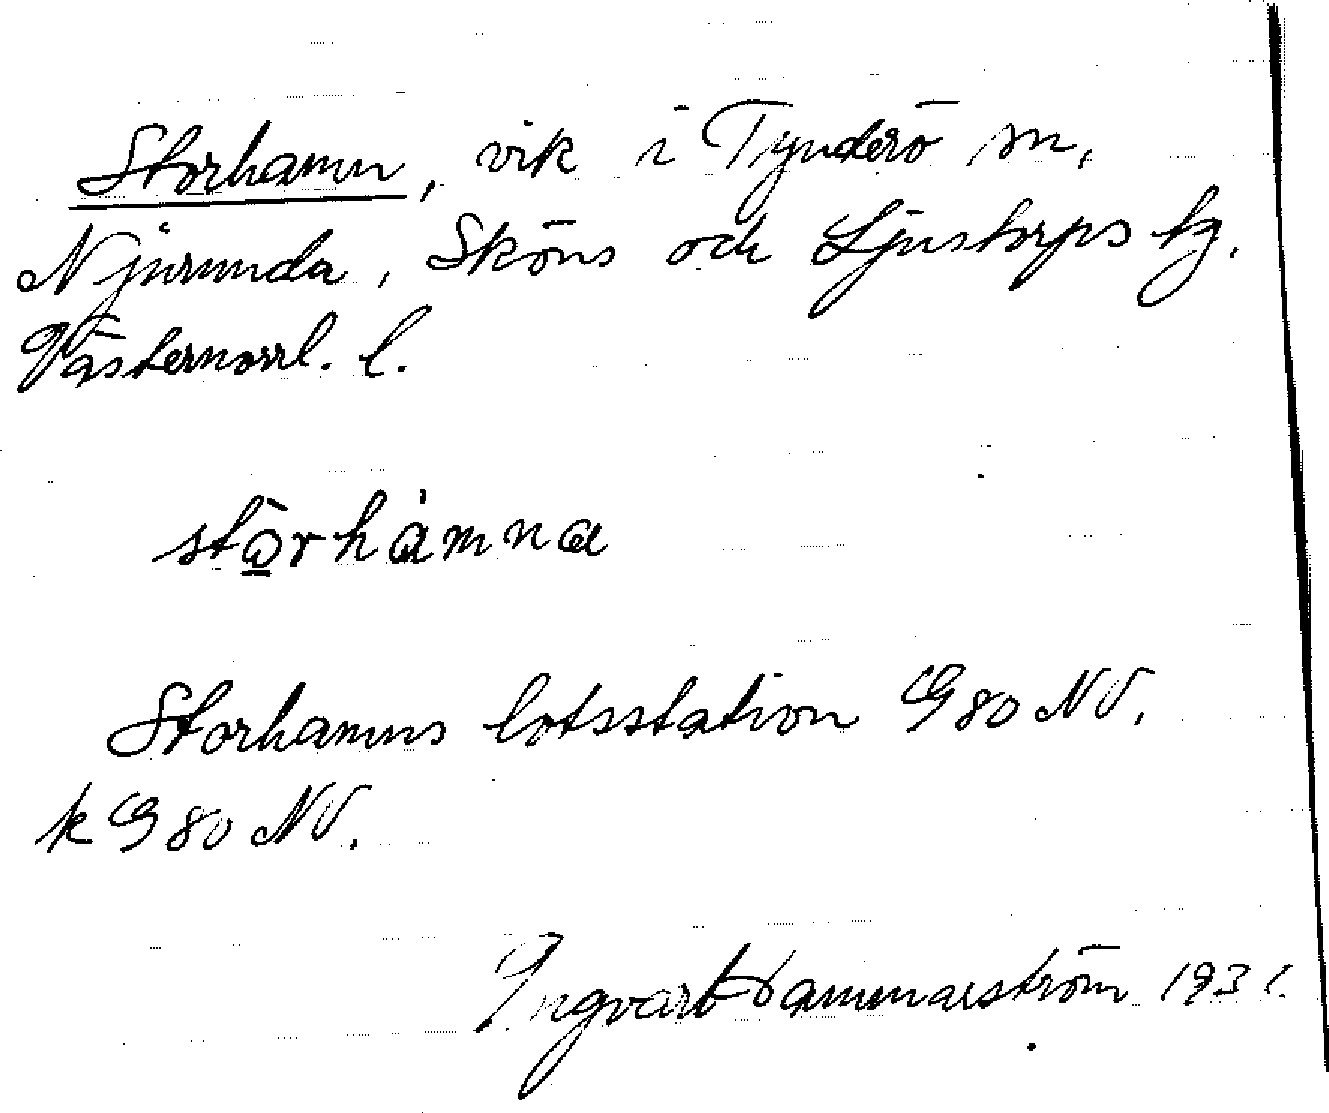 Storhamn, vik i Tynderö sn,
Njurunda, Sköns och Ljustorps tg.
Västernorrl. l.
stǫ̀rhámna
Storhamns lotsstation G 80 NV.
k G 80 NV.
Ingvar Hammarström 1931.